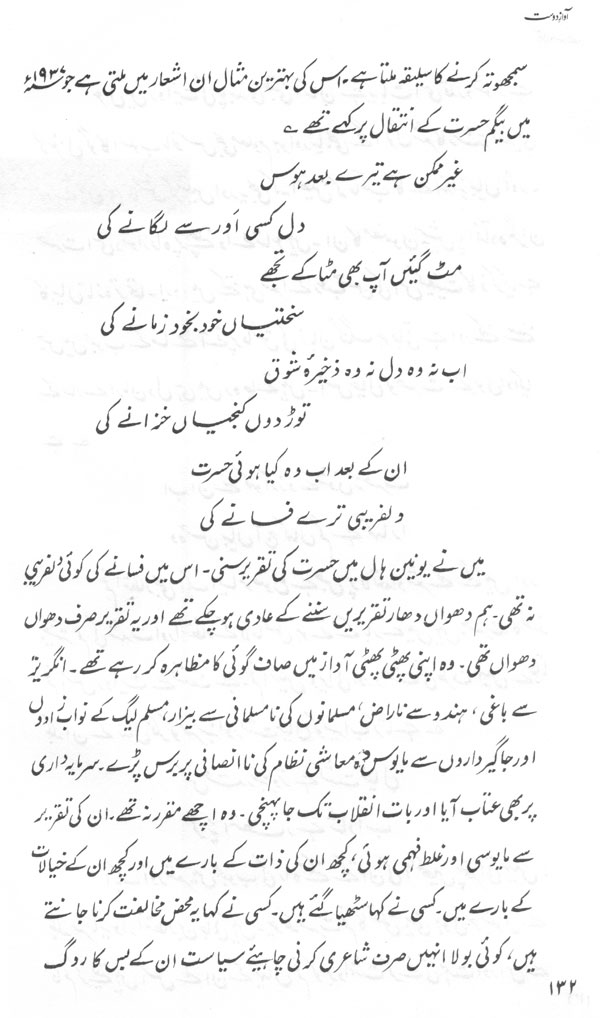 آوازِ دوست
سمجھوتہ کرنے کا سلیقہ ملتا ہے۔ اس کی بہترین مثال ان اشعار میں ملتی ہے جو ۱۹۳۷ء
میں بیگم حسرت کے انتقال پر کہے تھے ؎
غیر ممکن ہے تیرے بعد ہوس
دل کسی اَور سے لگانے کی
مٹ گئیں آپ بھی مٹا کے تجھے
سختیاں خود بخود زمانے کی
اب نہ وہ دل نہ وہ ذخیرۂ شوق
توڑ دوں کنجیاں خزانے کی
ان کے بعد اب وہ کیا ہوئی حسرت
دلفریبی ترے فسانے کی
میں نے یونین ہال میں حسرت کی تقریر سنی۔ اس میں فسانے کی کوئی دلفریبی
نہ تھی۔ ہم دھواں دھار تقریریں سننے کے عادی ہو چکے تھے اور یہ تقریر صرف دھواں
دھواں تھی۔ وہ اپنی پھٹی پھٹی آواز میں صاف گوئی کا مظاہرہ کر رہے تھے۔ انگریز
سے باغی، ہندو سے ناراض، مسلمانوں کی نامسلمانی سے بیزار، مسلم لیگ کے نواب زادوں
اور جاگیرداروں سے مایوس وہ معاشی نظام کی ناانصافی پر برس پڑے۔ سرمایہ داری
پر بھی عتاب آیا اور بات انقلاب تک جا پہنچی۔ وہ اچھے مقرر نہ تھے۔ ان کی تقریر
سے مایوسی اور غلط فہمی ہوئی، کچھ ان کی ذات کے بارے میں اور کچھ ان کے خیالات
کے بارے میں۔ کسی نے کہا سٹھیا گئے ہیں۔ کسی نے کہا یہ محض مخالفت کرنا جانتے
ہیں، کوئی بولا انہیں صرف شاعری کرنی چاہیئے سیاست ان کے بس کا روگ
۱۳۲